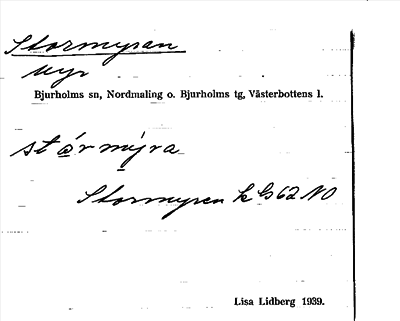 Stormyran
Myr
Bjurholms sn, Nordmaling o. Bjurholms tg, Västerbottens l.
stårmýra
Stormyren k G 62 NO
Lisa Lidberg 1939.